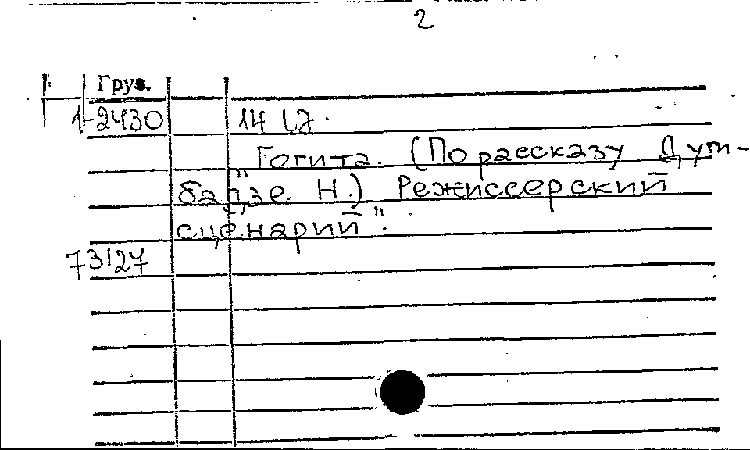 2
Груз.
1-2430
"Гогита. (По рассказу Думбадзе Н.) Режиссерский
сценарий".
73127